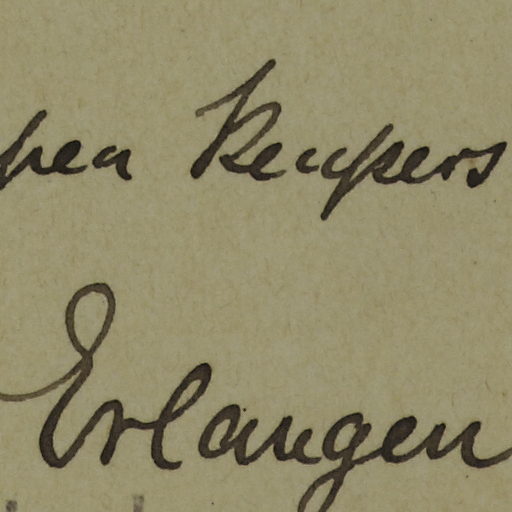 Keupers
Erlangen